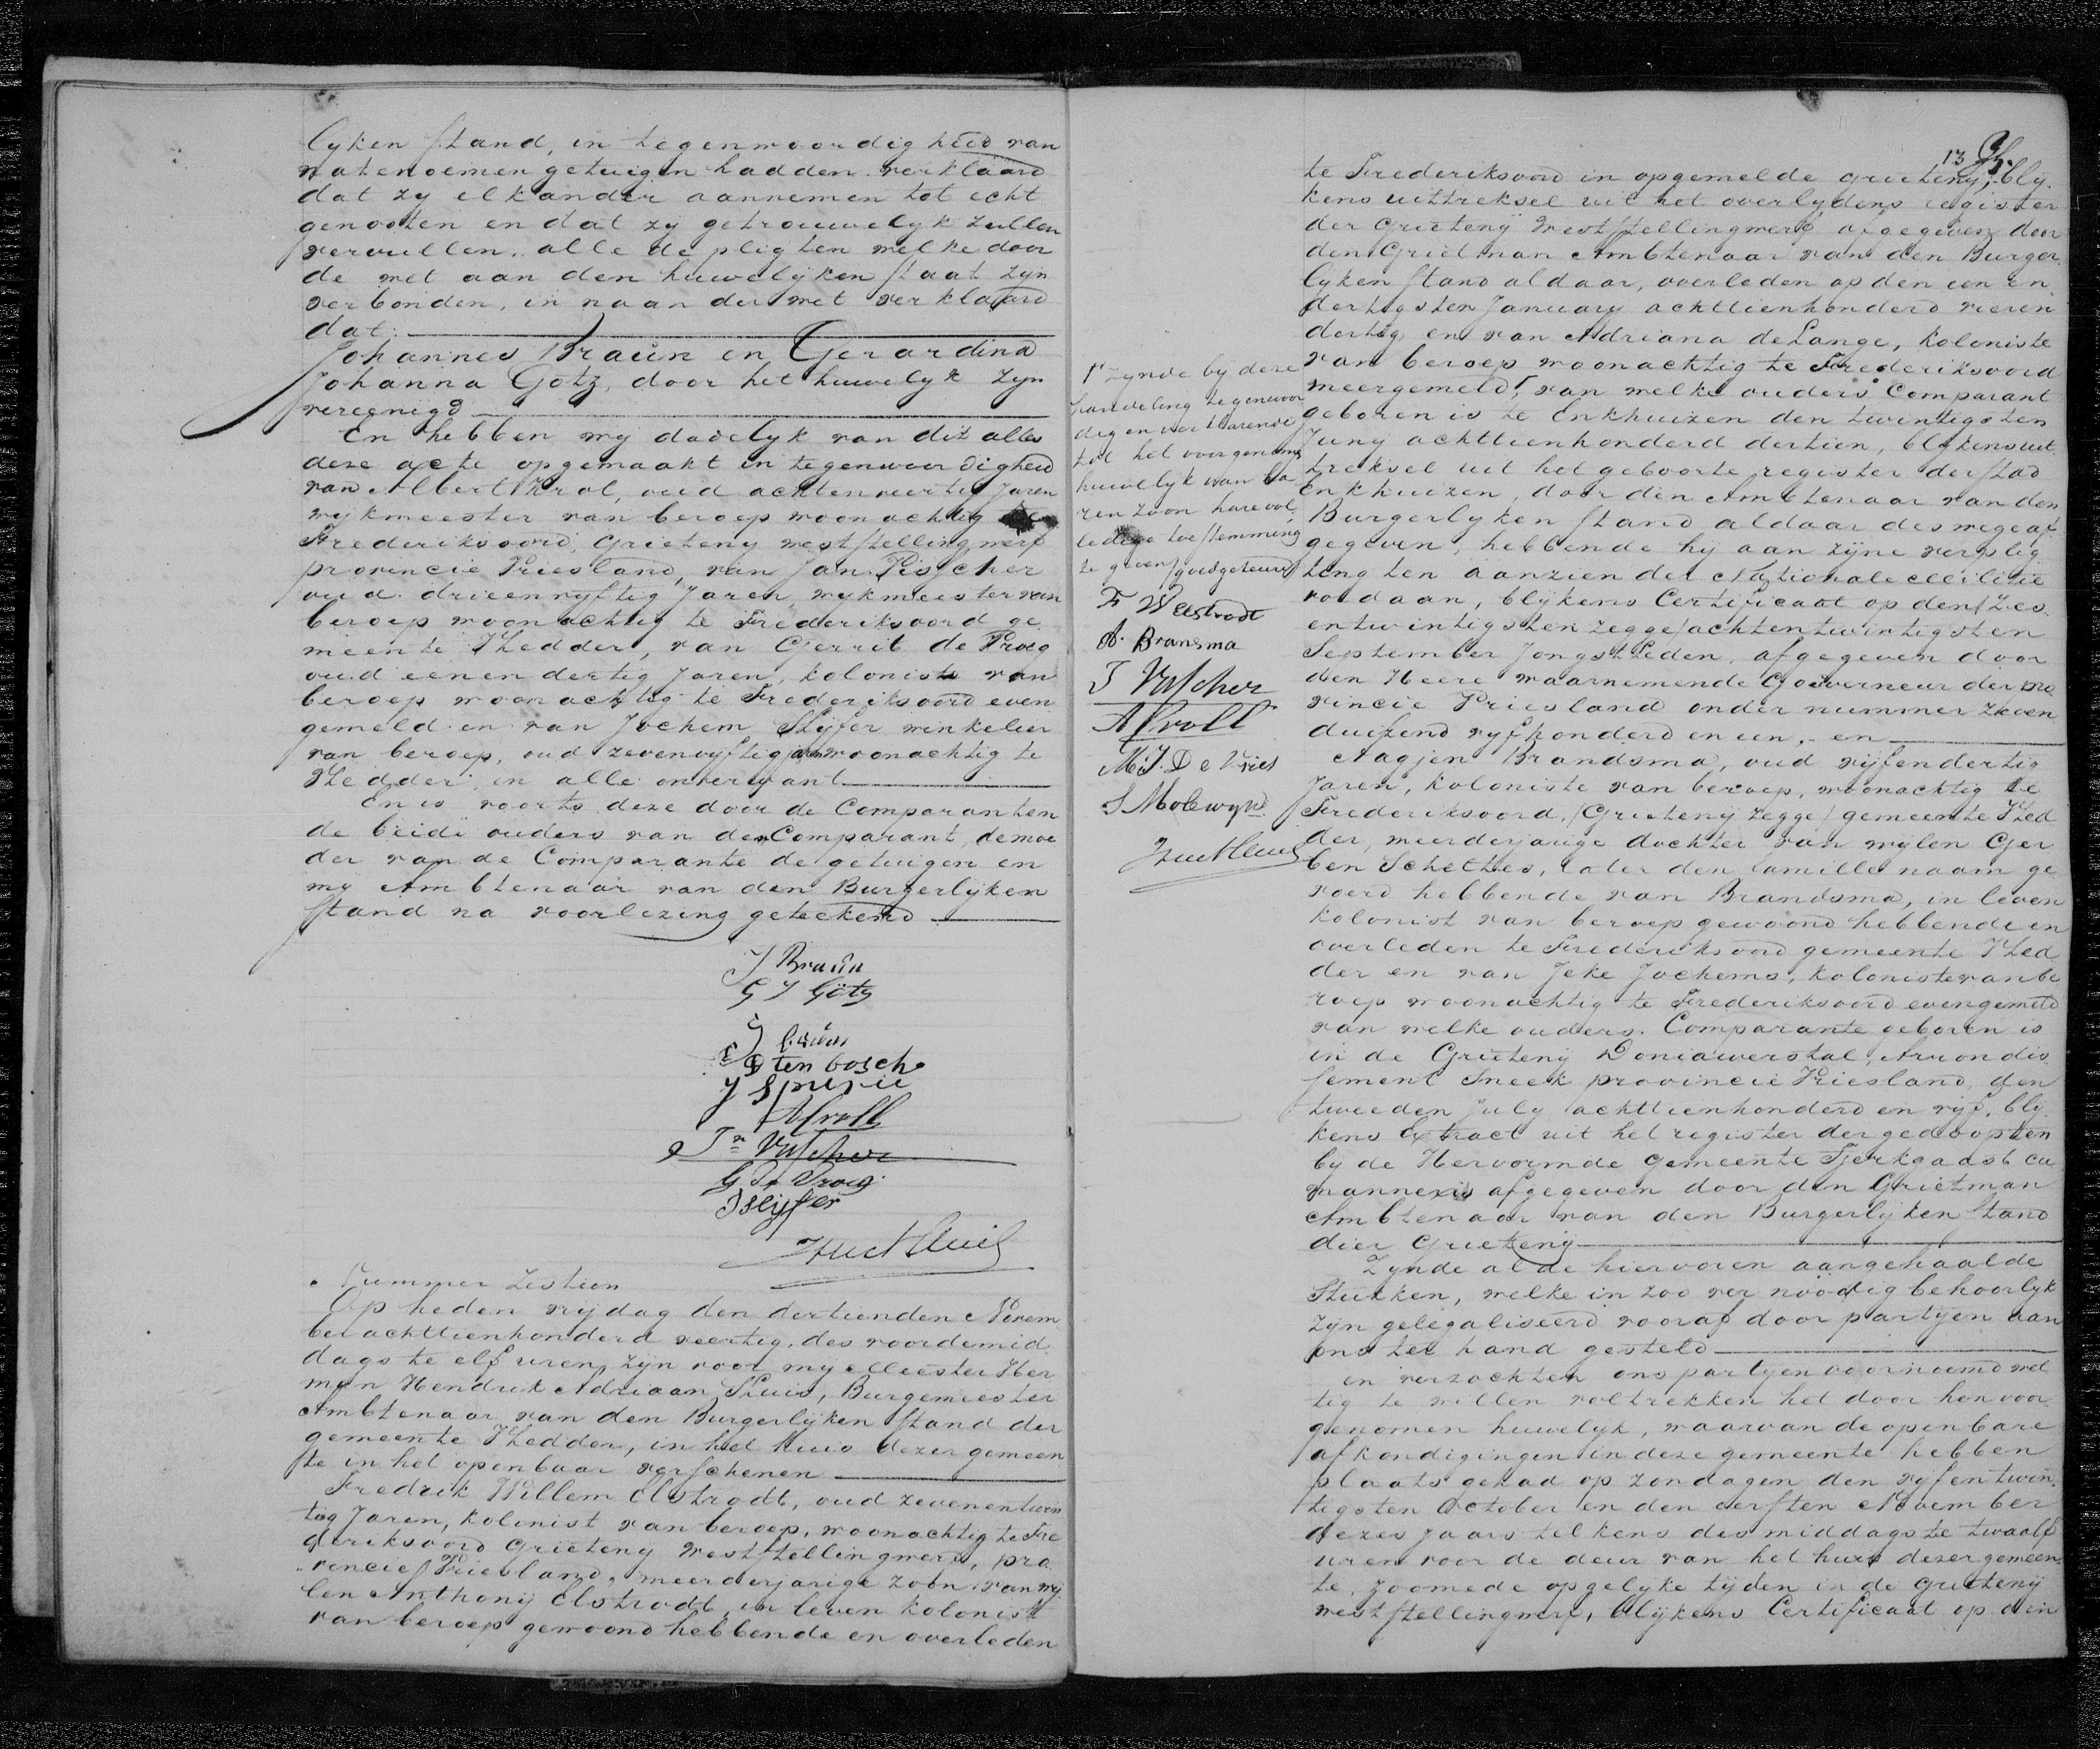 lyken stand, in tegenwoordigheid van
natenoemen getuigen hadden verklaard
dat zy elkander aannemen tot echt
genooten en dat zy getrouwelyk zullen
vervullen, alle de pligten welke door
de wet aan den huwelyken staat zyn
verbonden, in naam der wet verklaard
dat:
Johannes Braün en Gerardina
Johanna Götz, door het huwelyk zyn
vereenigd
En hebben wy dadelyk van dit alles
deze acte opgemaakt in tegenwoordigheid
van Albert Krol, oud achtenveertig Jaren
wykmeester van beroep woonachtig te
Frederiksoord, Grieteny Weststellingwerf
provincie Vriesland, van Jan Visscher
oud drieenvyftig Jaren, wykmeester van
beroep woonachtig te Frederiksoord ge
meente Vledder, van Gerrit de Vroeg
oud eenendertig Jaren, kolonist van
beroep woonachtig te Frederiksoord even
gemeld en van Jochem Slyfer winkelier
van beroep, oud zevenvyftig Jaren woonachtig te
Vledder, in alle onverwant
En is voorts deze door de Comparanten
de beide ouders van den Comparant, de moe
der van de Comparante de getuigen en
my Ambtenaar van den Burgerlyken
stand na voorlezing geteekend
J Braün
G J Götz
J Braün
D ten bosch
J Spuzie
A Croll
Jn Visscher
G. de Vroeg
J Slyfer
Nummer Zestien
Op heden vrydag den dertienden Novem
ber achttienhonderd veertig, des voordemid
dags te elf uren, zyn voor my Meester Her
man Hendrik Adriaan Sluis, Burgemeester
Ambtenaar van den Burgerlyken stand der
gemeente Vledder, in het huis dezer gemeen
te in het openbaar verschenen
Fredrik Willem Elstrodt, oud zevenentwin
tig Jaren, kolonist van beroep, woonachtig te Fre
deriksoord Grieteny Weststellingwerf, pro
vincie Vriesland, meerderjarige zoon van wy
len Anthony Elstrodt, in leven kolonist
van beroep gewoond hebbende en overleden
13
te Frederiksoord in opgemelde grieteny, bly
kens uittreksel uit het overlydens register
der Grieteny Weststellingwerf, afgegeven door
den Grietman Ambtenaar van den Burger
lyken stand aldaar, overleden op den een en
dertigsten January achttienhonderd vieren
dertig en van Adriana de Lange, koloniste
van beroep woonachtig te Frederiksoord
meergemeld, van welke ouders Comparant
geboren is te Enkhuizen den twintigsten
Juny achttienhonderd dertien, blykens uit
treksel uit het geboorte register der stad
Enkhuizen, door den Ambtenaar van den
Burgerlyken stand aldaar deswege af
gegeven, hebbende hy aan zyne verplig
ting ten aanzien der Nationale Militie
voldaan, blykens Certificaat op den zes
entwintigsten zegge achtentwintigsten
September Jongstleden, afgegeven door
den Heere waarnemende Gouverneur der pro
vincie Vriesland onder nummer zeven
duizend vyfhonderd en een, en
Aagjen Brandsma, oud vyfendertig
Jaren, koloniste van beroep, woonachtig te
Frederiksoord, (Grieteny zegge) gemeente Vled
der, meerderjarige dochter van wylen Ger
ben Scheltes, later den familie naam ge
voerd hebbende van Brandsma, in leven
kolonist van beroep gewoond hebbende en
overleden te Frederiksoord gemeente Vled
der en van Jeke Jochems, koloniste van be
roep woonachtig te Frederiksoord evengemeld
van welke ouders Comparante geboren is
in de Grieteny Doniawerstal, Arrondis
sement Sneek provincie Vriesland, den
tweeden July achttienhonderd en vyf, bly
kens Extract uit het register der gedoopten
by de Hervormde gemeente Tjerkgaast cu
mannexis afgegeven door den Grietman
Ambtenaar van den Burgerlyken stand
dier Grieteny
Zynde al de hiervoren aangehaalde
Stukken, welke in zoo ver noodig behoorlyk
zyn gelegaliseerd vooraf door partyen aan
ons ter hand gesteld
en verzochten ons partyen voornoemd wet
tig te willen voltrekken het door hen voor
genomen huwelyk, waarvan de openbare
afkondigingen in deze gemeente hebben
plaats gehad op zondagen den vyfentwin
tigsten October en den eersten November
dezes Jaars telkens des middags te twaalf
uren voor de deur van het huis dezer gemeen
te, zoomede op gelyke tyden in de grieteny
Weststellingwerf, blykens Certificaat op den
Zynde by deze
handeling tegenwoor
dig en verklarende
tot het voorgenomen
huwelyk van ha
ren zoon hare vol
ledige toestemming
te geven goedgekeurd
F W Elstrodt
A. Bransma
J Visscher
A Croll
M. J. De Vries
S Molewyk